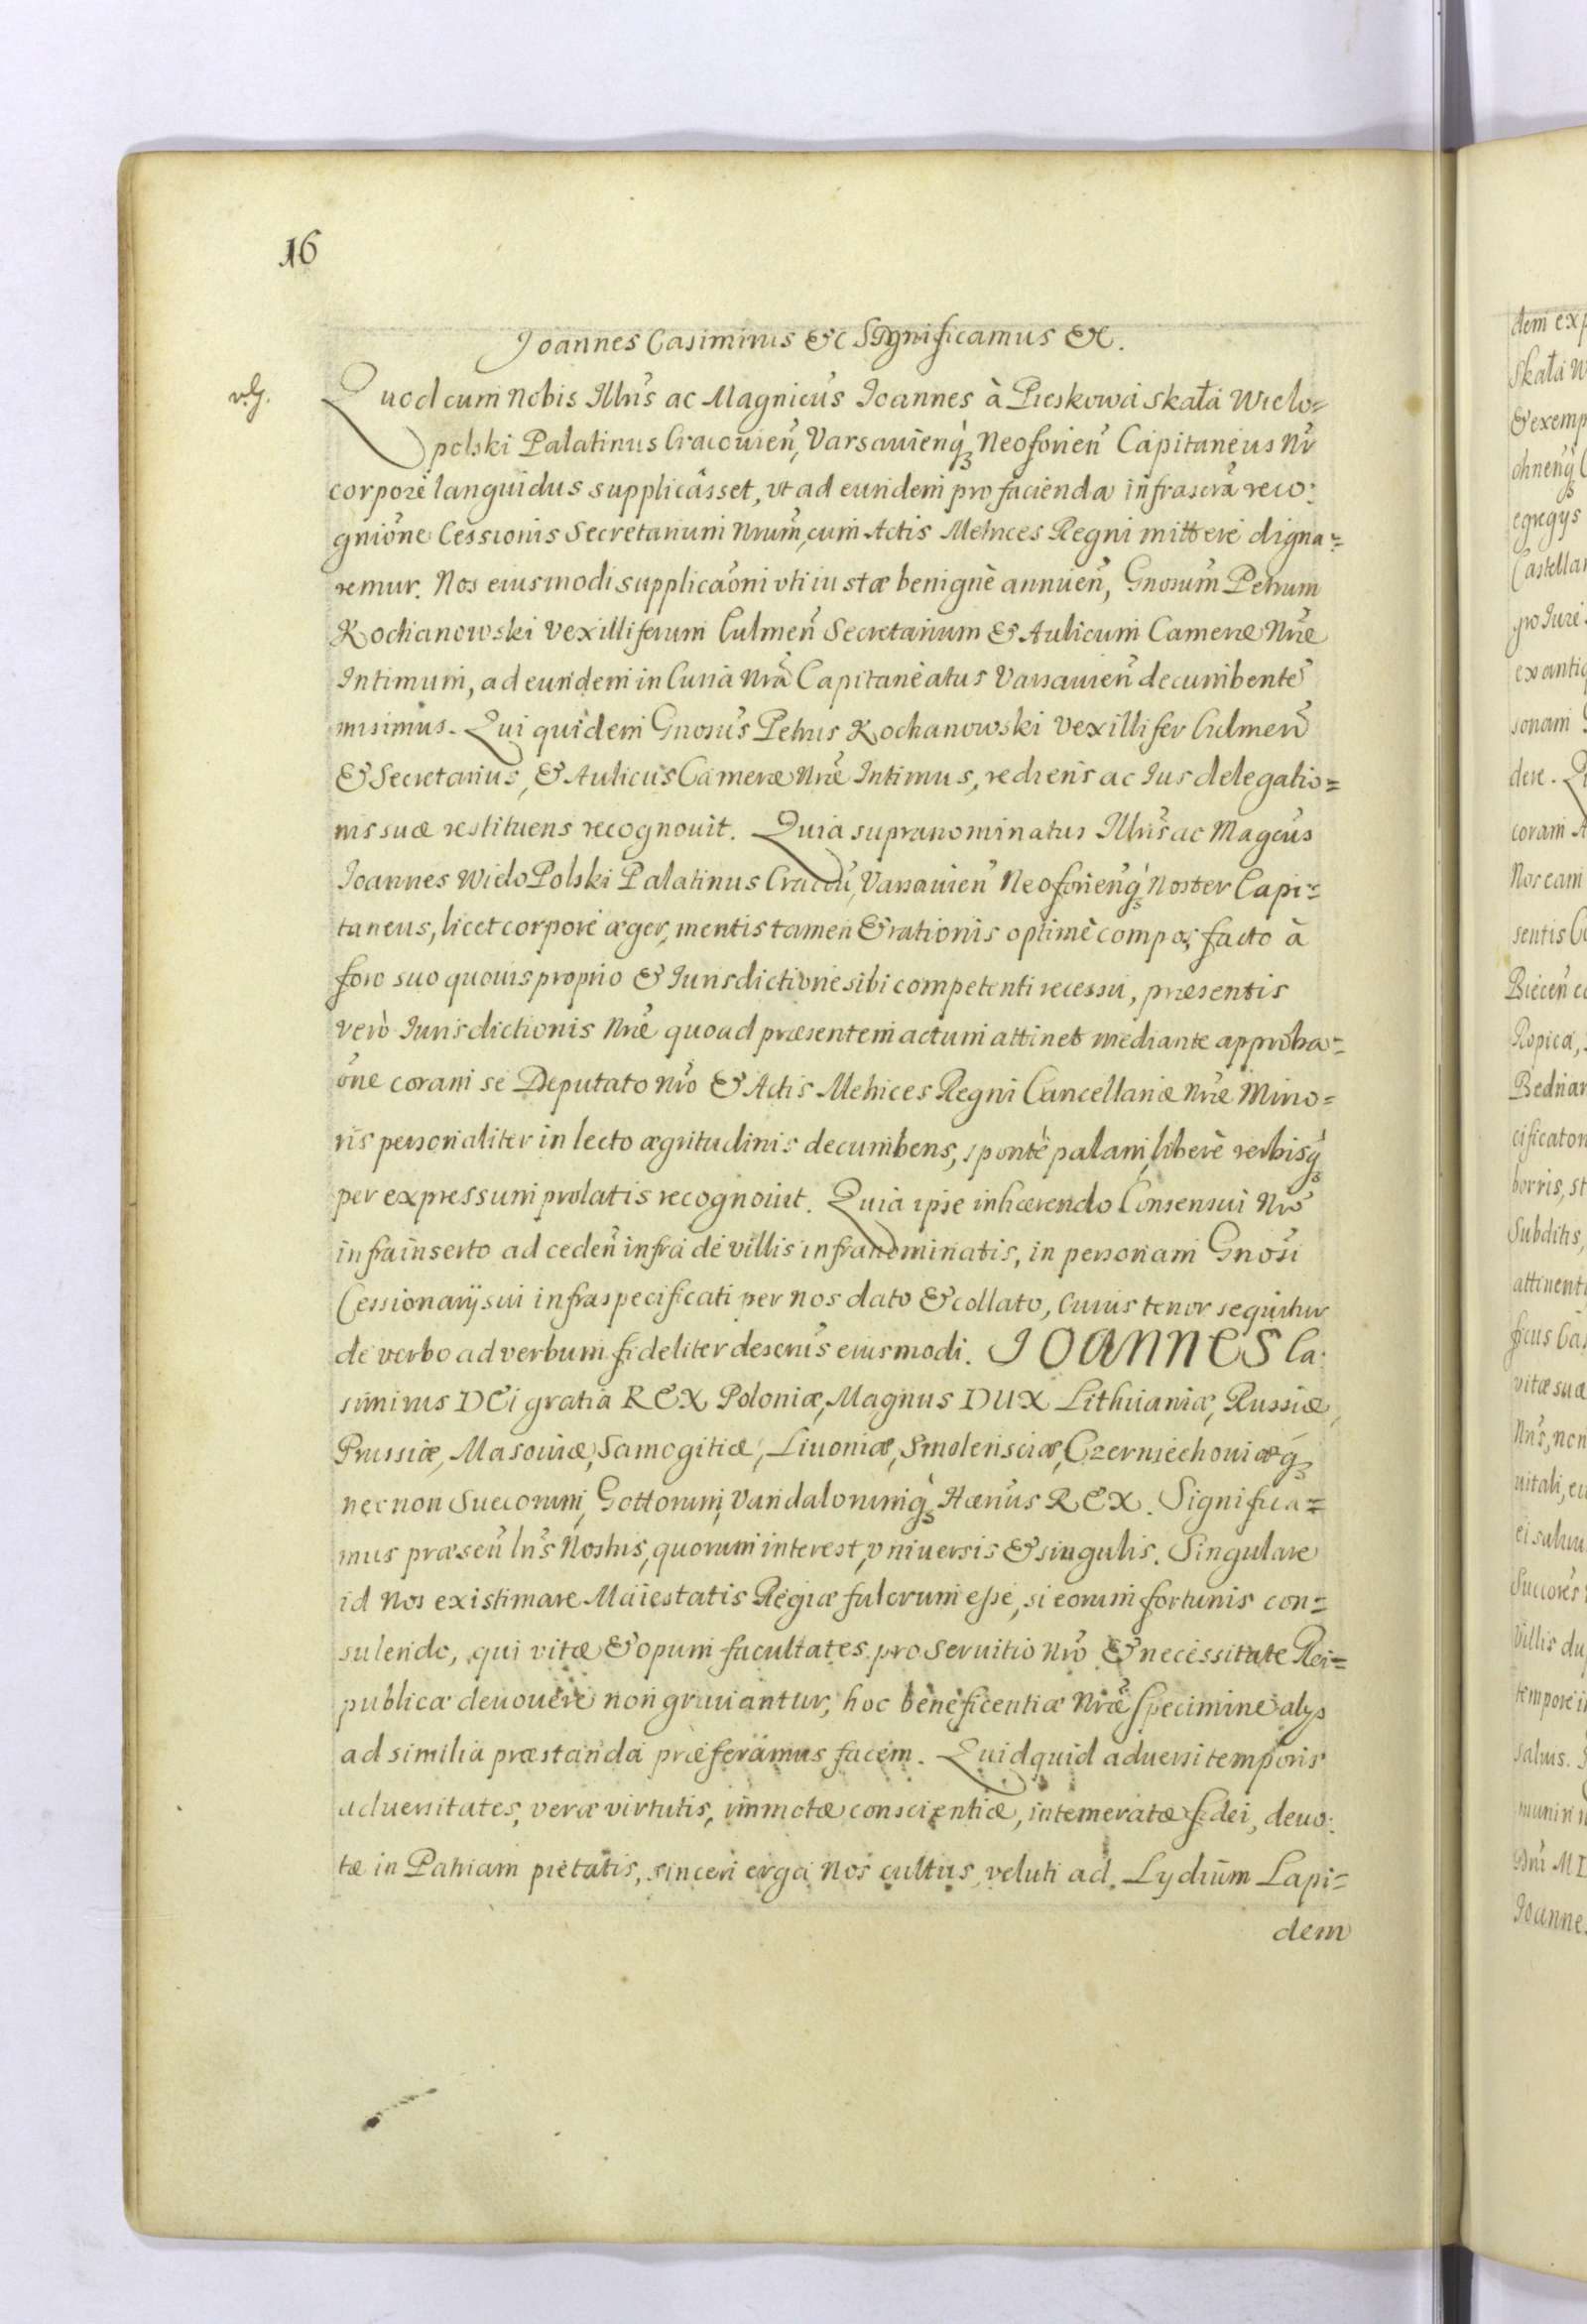 16
Joannes Casimirus &c Significamus &c.
Quod cum Nobis Illris ac Magnicus Joannes à Pieskowa skała Wielo=
polski Palatinus Cracouien, Varsauienq, Neoforien Capitaneus Nr
corpore languidus supplicâsset, vt ad eundem pro facienda infrascra reco:
gnione Cessionis Secretarium Nrum, cum Actis Metrices Regni mittere digna=
remur. Nos eiusmodi supplicaoni vti iustæ benignè annuen, Gnosum Petrum
Kochanowski Vexilliferum Culmen Secretarium & Aulicum Cameræ Nræ
Intimum, ad eundem in Curia Nra Capitaneatus Varsauien decumbente
misimus. Qui quidem Gnosus Petrus Kochanowski Vexillifer Culmen
& Secretarius, & Aulicus Cameræ Nræ Intimus, rediens ac Jus delegatio=
nis suæ restituens recognouit. Quia supranominatus Illris ac Magcus
Joannes WieloPolski Palatinus Cracou, Varsauien Neoforienq Noster Capi=
taneus, licet corpore æger, mentis tamen & rationis optimè compos, facto à
foro suo quouis proprio & Jurisdictione sibi competenti recessu, præsentis
verò Jurisdictionis Nræ quoad præsentem actum attinet mediante approba=
one coram se Deputato Nro & Actis Metrices Regni Cancellariæ Nræ Mino=
ris personaliter in lecto ægritudinis decumbens, spontè palam, liberè verbisq
per expressum prolatis recognouit. Quia ipse inhærendo Consensui Nro
infrainserto ad ceden infra de villis infranominatis, in personam Gnosi
Cessionarij sui infraspecificati per nos dato & collato, Cuius tenor sequitur
de verbo ad verbum fideliter descrius eiusmodi. JOANNES Ca:
simirus DEi gratia REX Poloniæ, Magnus DUX Lithuaniæ, Russiæ,
Prussiæ, Masouiæ, Samogitiæ, Liuoniæ, Smolensciæ, Czerniechouiæq
nec non Suecorum, Gottorum, Vandalorumq Hærius REX. Significa=
mus præsen lris Nostris, quorum interest, vniuersis & singulis. Singulare
id Nos existimare Maiestatis Regiæ fulcrum esse, si eorum fortunis con=
sulendo, qui vitæ & opum facultates pro Seruitio Nro & necessitate Rei=
publicæ deuouere non grauantur, hoc beneficentiæ Nræ specimine alys
ad similia præstanda præferamus facem. Quidquid aduersi temporis
aduersitates, veræ virtutis, immotæ conscientiæ, intemeratæ fidei, deuo:
tæ in Patriam pietatis, sinceri erga Nos cultus, veluti ad Lydium Lapi=
dem